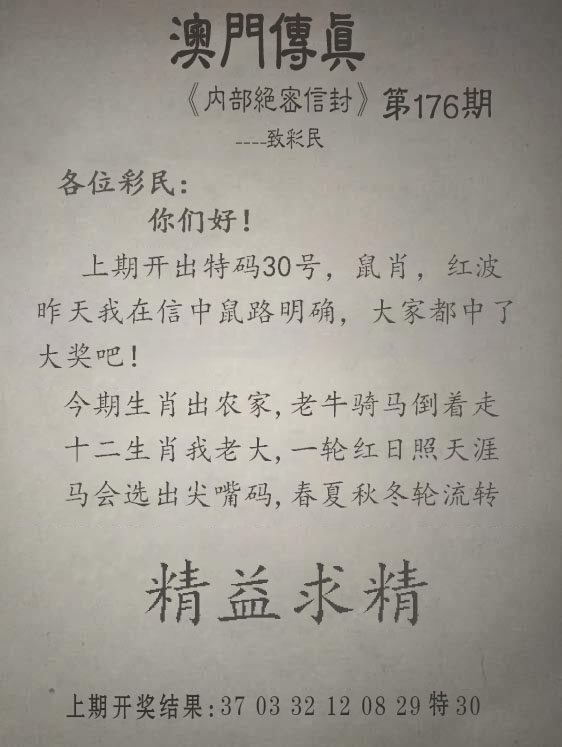 澳門傳眞
《内部絕密信封》第176期
----致彩民
各位彩民:
你们好!
上期开出特码30号，鼠肖，红波
昨天我在信中鼠路明确，大家都中了
大奖吧!
今期生肖出农家,老牛骑马倒着走
十二生肖我老大,一轮红日照天涯
马会选出尖嘴码,春夏秋冬轮流转
精益求精
上期开奖结果:37 03 32 12 08 29 特30